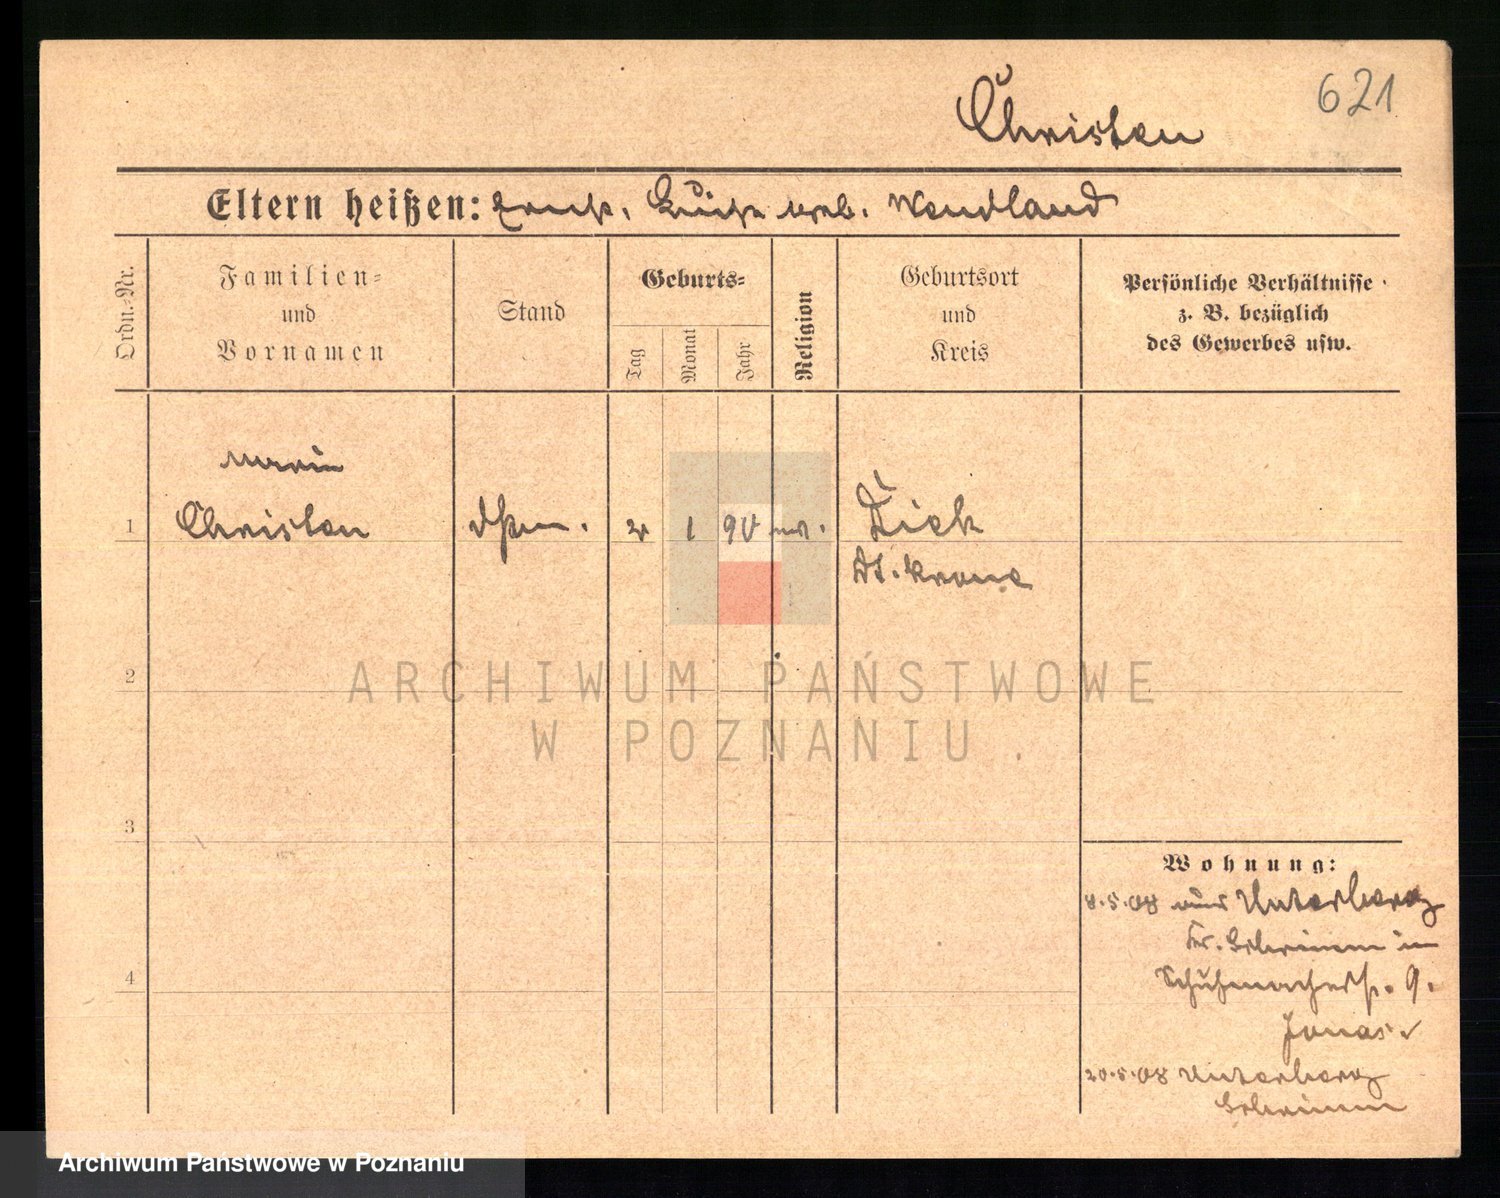 621
Christen
Eltern heißen: Ernst. Luise geb. Wendland
Ordn.-Nr.
Familien-
und
Vornamen
Stand
Geburts-
Tag
Monat
Jahr
Religion
Geburtsort
und
Kreis
Persönliche Verhältnisse
z. B. bezüglich
des Gewerbes usw.
1
Christen
1
90
Dt. Krone
2
3
4
Wohnung:
8.5.08 aus Unterberg
Kr. Schrimm in
Schuhmacherst. 9.
Jonas
20.5.08 Unterberg
Schrimm
ARCHIWUM PAŃSTWOWE
W POZNANIU
Archiwum Państwowe w Poznaniu